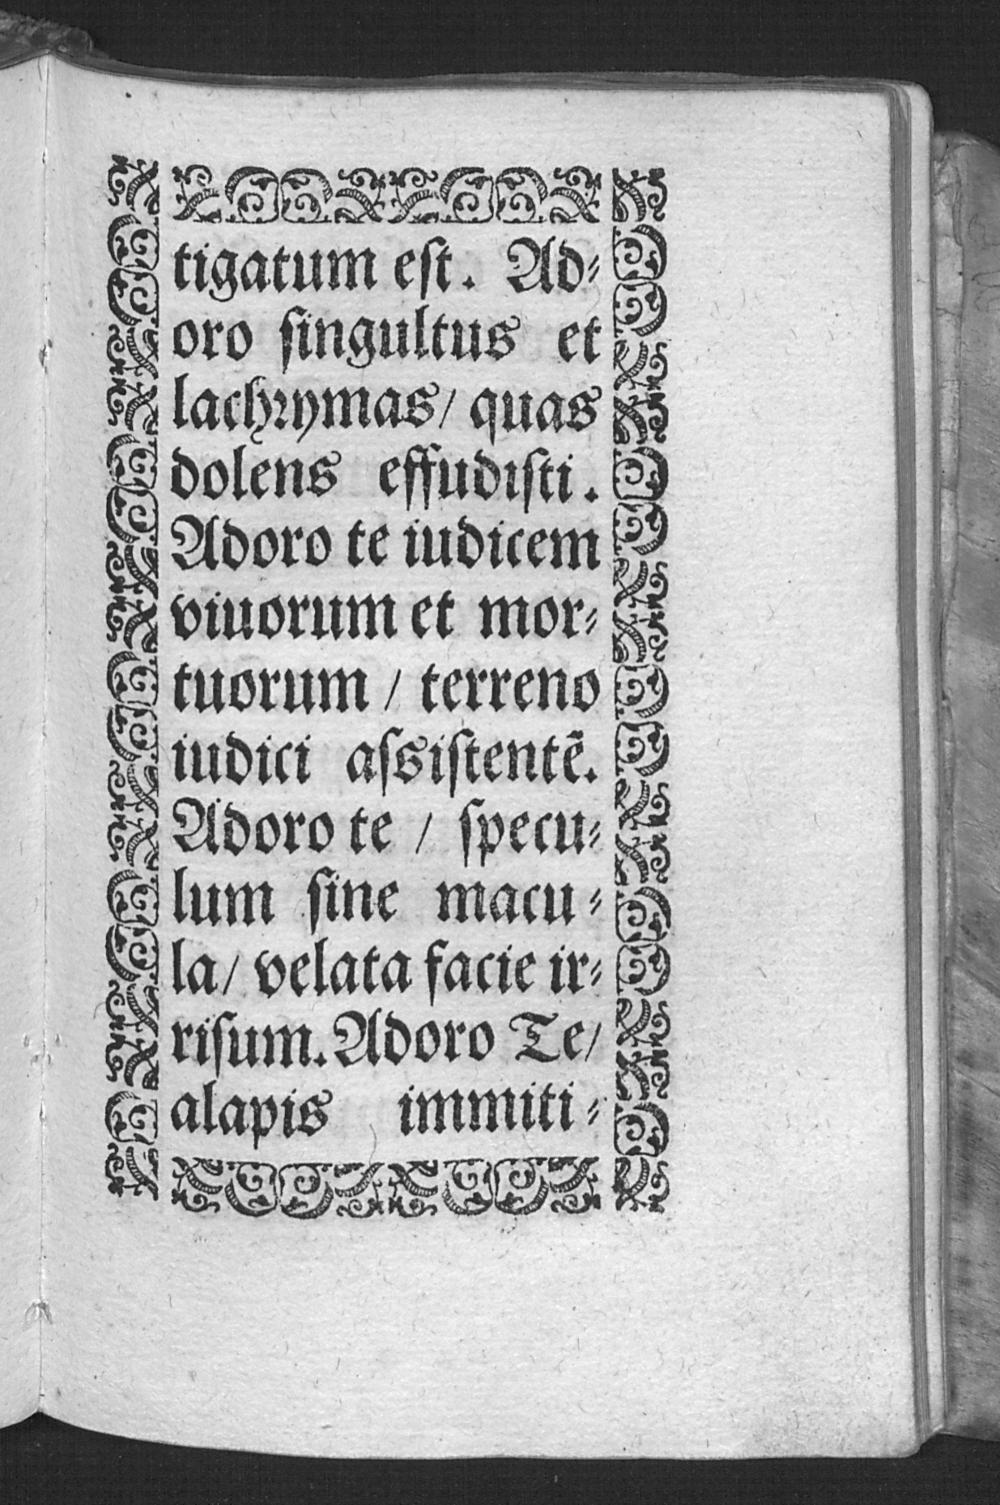 tigatum eſt. Ad⸗
oro ſingultus et
lachꝛymas/ quas
dolens effudiſti.
Adoro te iudicem
viuorum et mor⸗
tuorum / terreno
iudici aſsiſtentē.
Adoro te / ſpecu⸗
lum ſine macu⸗
la/ velata facie ir⸗
riſum. Adoro Te/
alapis immiti⸗